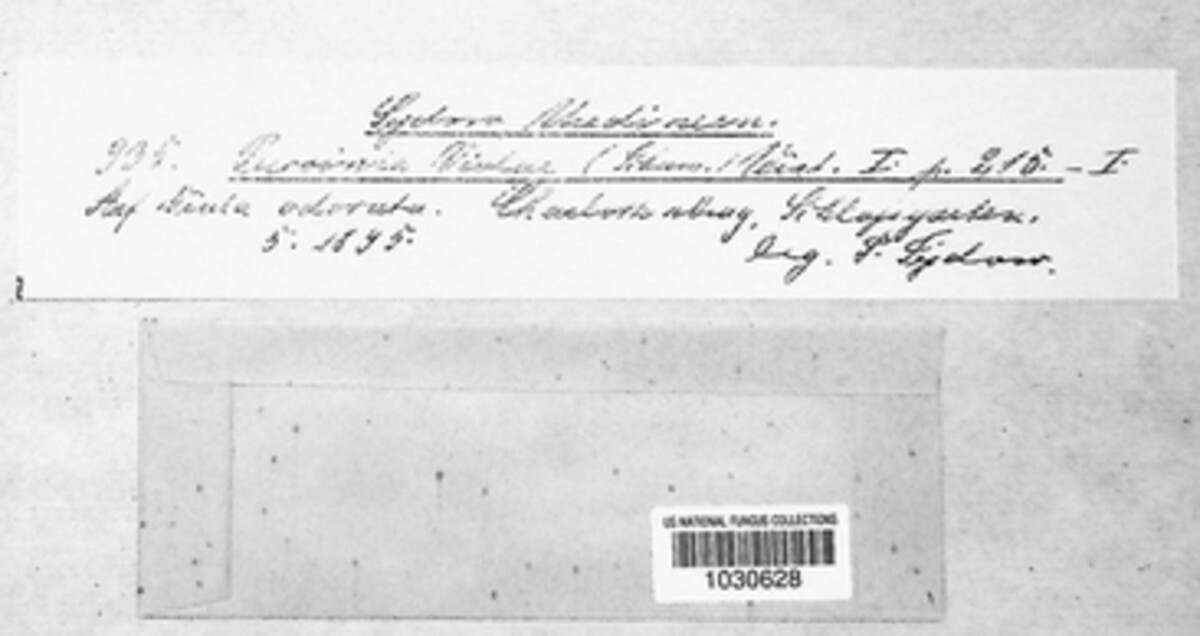 Sydow Uredineen.
995. Puccinia Violae (Schum.) Wint. I. p. 215. – I
Auf Viola odorata. Charlottenburg, Schlossgarten.
5. 1895.
leg. P. Sydow.
US NATIONAL FUNGUS COLLECTIONS
1030628